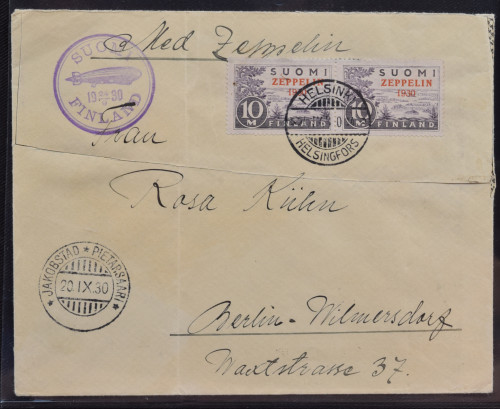 Med Zeppelin
SUOMI
19 30
FINLAND
SUOMI
ZEPPELIN
1930
10 M
FINLAND
SUOMI
ZEPPELIN
1930
10 M
FINLAND
HELSINKI
HELSINGFORS
Frau
Rosa Kühn
JAKOBSTAD * PIETARSAARI *
20.IX.30
Berlin-Wilmersdorf
Waxtstrasse 37.